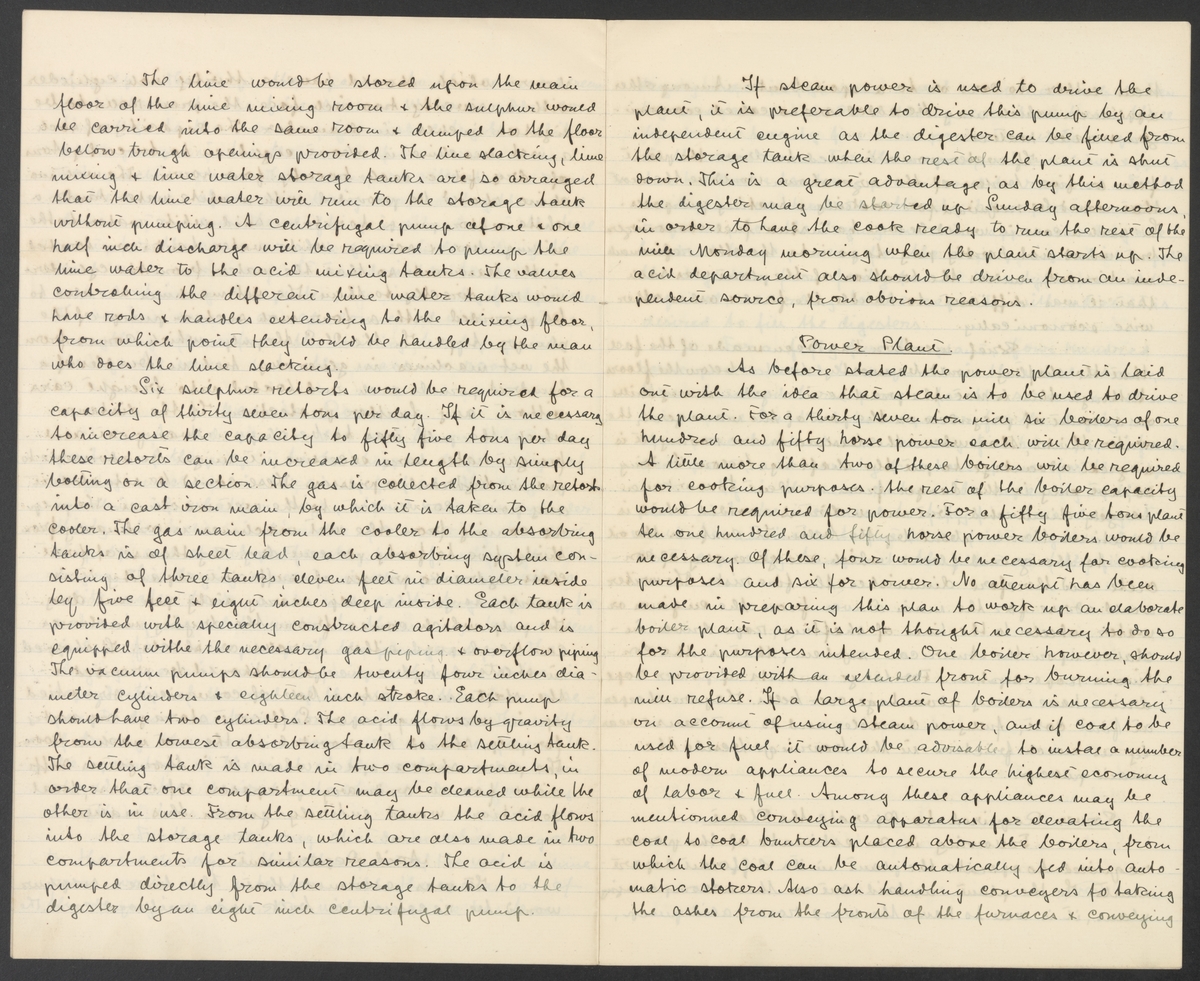 The lime would be stored upon the main
floor of the lime mixing room & the sulphur would
be carried into the same room & dumped to the floor
below trough openings provided. The lime slacking, lime
mixing & lime water storage tanks are so arranged
that the lime water will run to the storage tank
without pumping. A centrifugal pump of one & one
half inch discharge will be required to pump the
lime water to the acid mixing tanks. The valves
controlling the different lime water tanks would
have rods & handles extending to the mixing floor,
from which point they would be handled by the man
who does the lime slacking.
Six sulphur retorts would be required for a
capacity of thirty seven tons per day. If it is necessary
to increase the capacity to fifty five tons per day
these retorts can be increased in length by simply
bolting on a section. The gas is collected from the retorts
into a cast iron main, by which it is taken to the
cooler. The gas main from the cooler to the absorbing
tanks is of sheet lead, each absorbing system con-
sisting of three tanks, eleven feet in diameter inside
by five feet & eight inches deep inside. Each tank is
provided with specially constructed agitators and is
equipped withe the necessary gas piping & overflow piping
The vacuum pumps should be twenty four inches dia-
meter cylinders & eighteen inch stroke. Each pump
should have two cylinders. The acid flows by gravity
from the lowest absorbing tank to the settling tank.
The settling tank is made in two compartments, in
order that one compartment may be cleaned while the
other is in use. From the settling tanks the acid flows
into the storage tanks, which are also made in two
compartments for similar reasons. The acid is
pumped directly from the storage tanks to the
digester by an eight inch centrifugal pump.
If steam power is used to drive the
plant, it is preferable to drive this pump by an
independent engine as the digester can be fired from
the storage tank when the rest of the plant is shut
down. This is a great advantage, as by this method
the digester may be started up Sunday afternoons,
in order to have the cook ready to run the rest of the
mill Monday morning when the plant starts up. The
acid department also should be driven from an inde-
pendent source, from obvious reasons.
Power Plant.
As before stated the power plant is laid
out with the idea that steam is to be used to drive
the plant. For a thirty seven ton mill six boilers of one
hundred and fifty horse power each will be required.
A little more than two of these boilers will be required
for cooking purposes. the rest of the boiler capacity
would be required for power. For a fifty five tons plant
ten one hundred and fifty horse power boilers would be
necessary. Of these, four would be necessary for cooking
purposes and six for power. No attempt has been
made in preparing this plan to work up an elaborate
boiler plant, as it is not thought necessary to do so
for the purposes intended. One boiler however, should
be provided with an extended front for burning the
mill refuse. If a large plant of boilers is necessary
on account of using steam power, and if coal to be
used for fuel it would be advisable to instal a number
of modern appliances to secure the highest economy
of labor & fuel. Among these appliances may be
mentionned conveying apparatus for elevating the
coal to coal bunkers placed above the boilers, from
which the coal can be automatically fed into auto-
matic stokers. Also ash handling conveyers fo taking
the ashes from the fronts of the furnaces & conveying